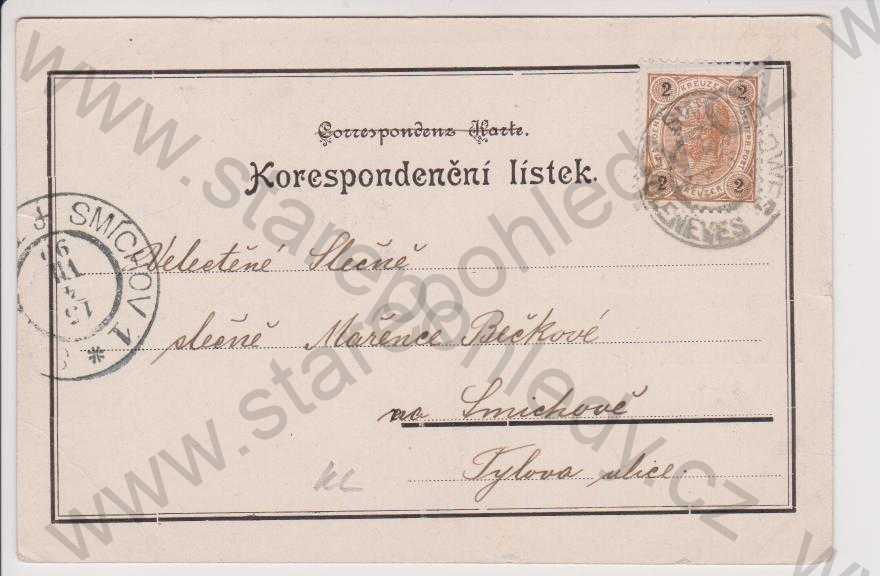 Correspondenz-Karte.
Korespondenční lístek.
2 KREUZER 2
2 2
SMÍCHOV 1
Velectěné Slečně
slečně Mařence Bečkové
na Smichově
Tylova ulice.
www.starepohledy.cz